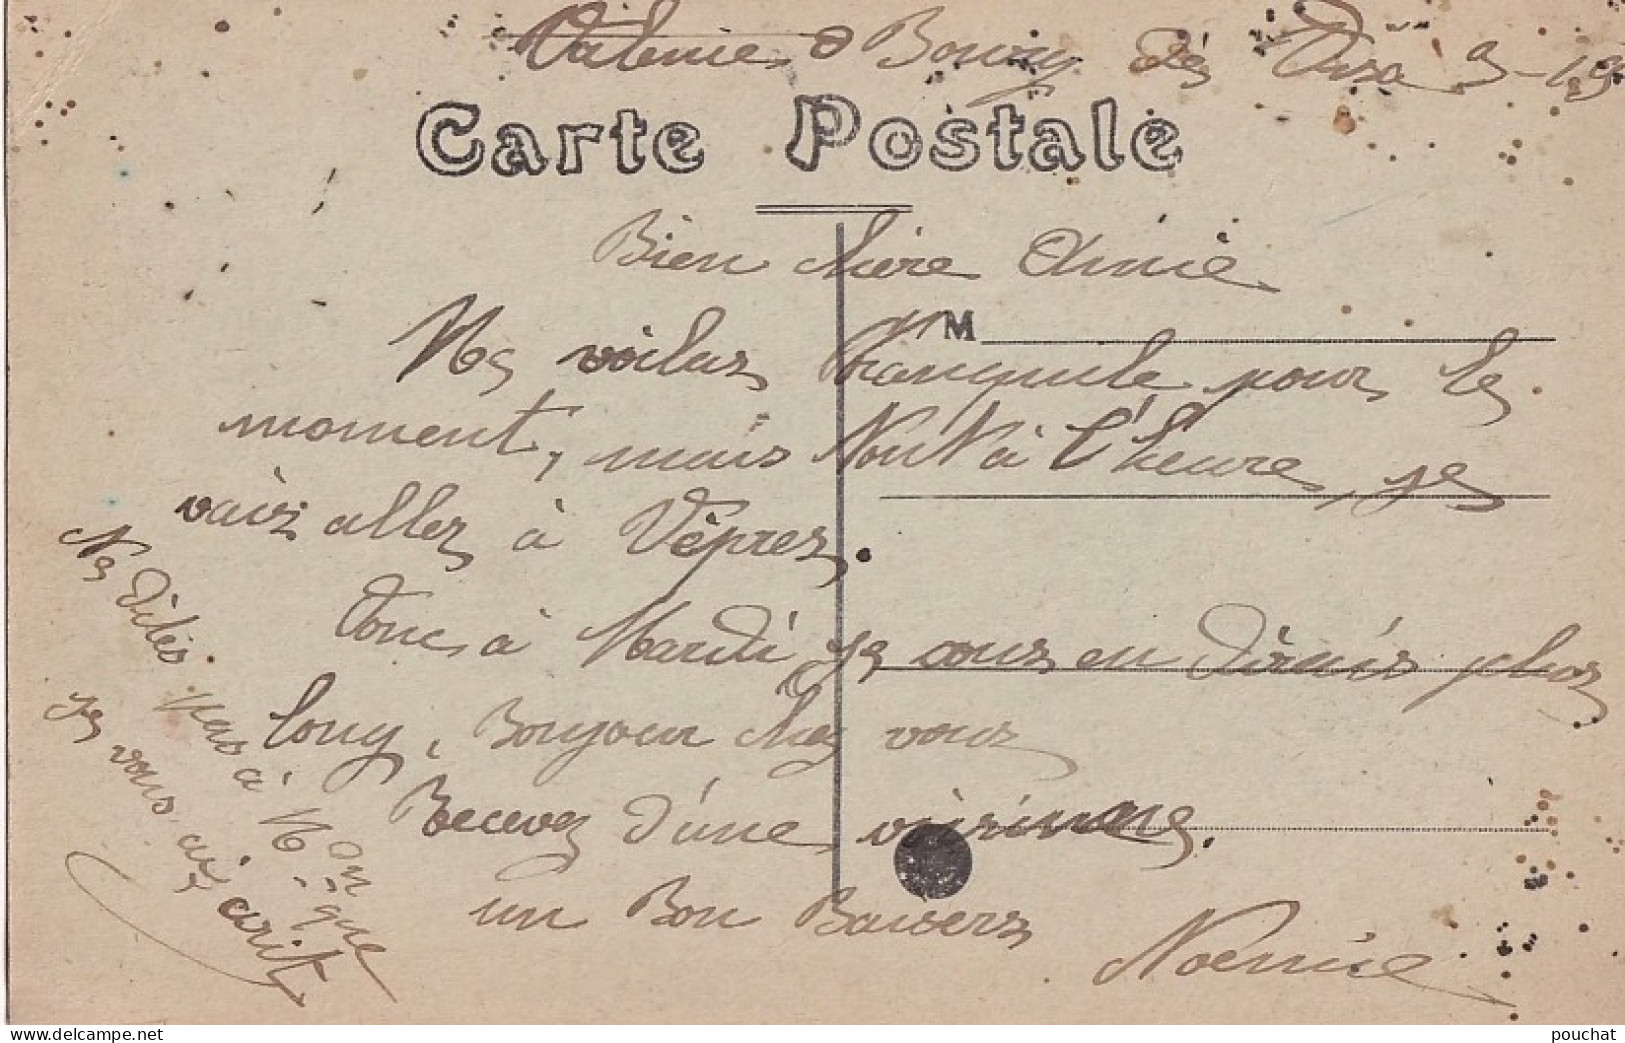 Valence
Carte Postale
Bien chère Amie
M
Me voilas tranquile pour le
moment, mais tout à l'heure, je
vais aller à Vêpres.
Donc à Mardi je vous en dirais plus
long, Bonjour chez vous
Recevez d'une voisinne.
un Bon Baisers
Noémie
Ne dites pas à M on
je vous ai écrit que
www.delcampe.net
pouchat